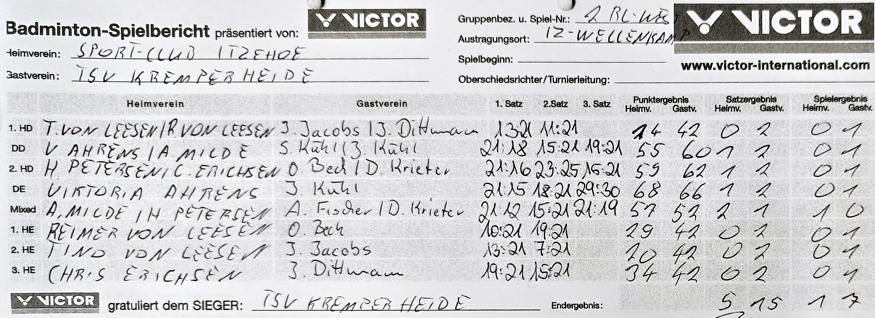 Badminton-Spielbericht präsentiert von: VICTOR
Gruppenbez. u. Spiel-Nr.: 2 RL-WEST
Austragungsort: IZ-WELLENKAMP
VICTOR
www.victor-international.com
Heimverein: SPORT-CLUB ITZEHOE
Spielbeginn:
Gastverein: TSV KREMPERHEIDE
Oberschiedsrichter/Turnierleitung:
Heimverein Gastverein 1. Satz 2. Satz 3. Satz Punktergebnis Heimv. Gastv. Satzergebnis Heimv. Gastv. Spielergebnis Heimv. Gastv.
1. HD T. VON LEESEN/R VON LEESEN J. Jacobs / J. Dittmann 13:21 11:21 42 0 2 0 1
DD V AHRENS / A. MILDE S. Kühl / J. Kühl 21:18 15:21 19:21 55 60 1 2 0 1
2. HD H PETERSEN/C. ERICHSEN O. Beck / D. Krieter 21:16 23:25 15:21 59 62 1 2 0 1
DE VIKTORIA AHRENS J. Kühl 21:15 18:21 29:30 68 66 1 2 0 1
Mixed A. MILDE / H PETERSEN A. Fischer / D. Krieter 21:12 15:21 21:19 57 52 2 1 1 0
1. HE REIMER VON LEESEN O. Beck 10:21 19:21 29 42 0 2 0 1
2. HE TINO VON LEESEN J. Jacobs 13:21 7:21 20 42 0 2 0 1
3. HE CHRIS ERICHSEN J. Dittmann 19:21 15:21 34 42 0 2 0 1
VICTOR gratuliert dem SIEGER: TSV KREMPERHEIDE Endergebnis: 5 15 1 7